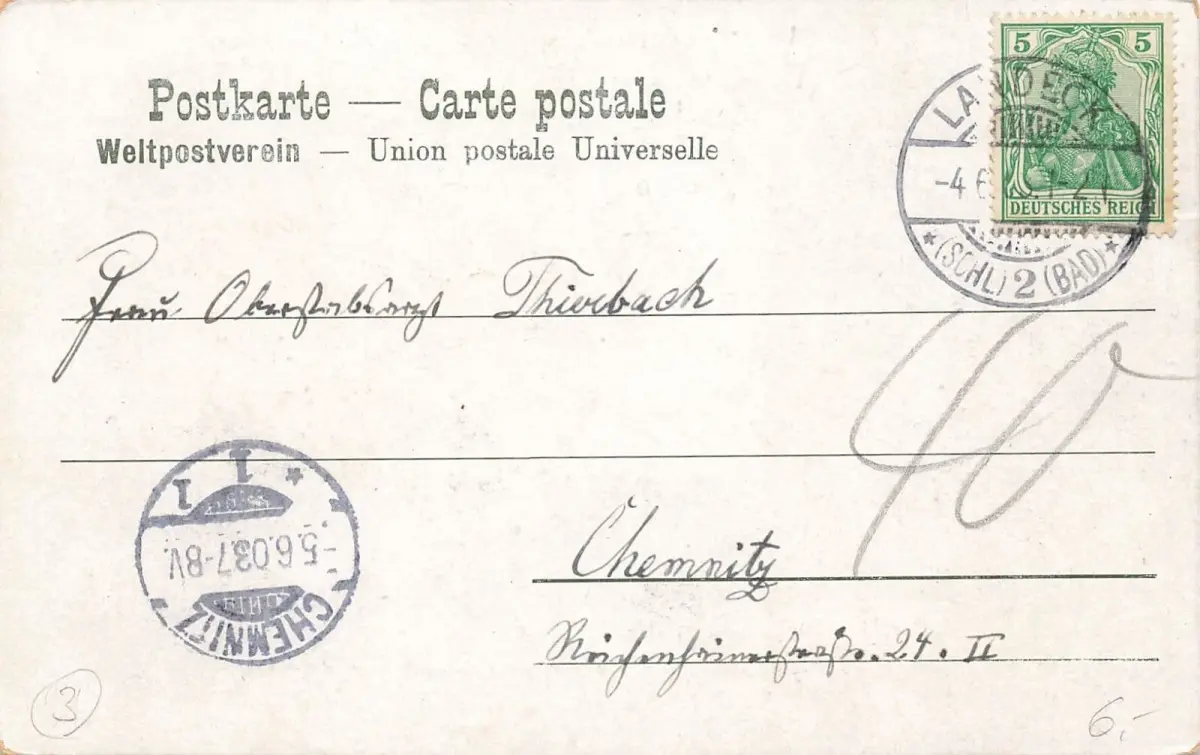 Postkarte — Carte postale
Weltpostverein — Union postale Universelle
5 5
DEUTSCHES REICH
LANDECK
-4.6. 1-2
* (SCHL) 2 (BAD) *
Frau Oberstabsarzt Thierbach
40
CHEMNITZ
-5.6.03.7-8V.
* 1 1
Chemnitz
Reichenhainerstraße. 24. II
3
6,-